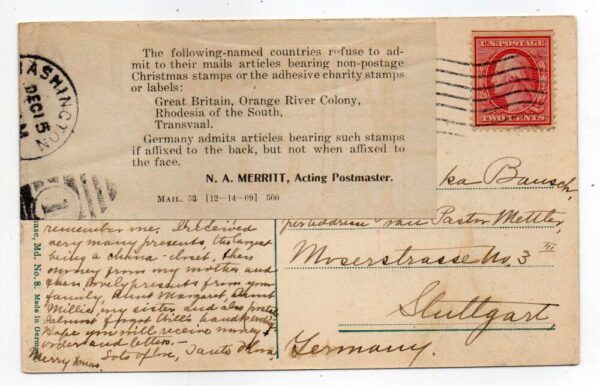 WASHINGTON
DEC 15
1
The following-named countries refuse to ad-
mit to their mails articles bearing non-postage
Christmas stamps or the adhesive charity stamps
or labels:
Great Britain, Orange River Colony,
Rhodesia of the South,
Transvaal.
Germany admits articles bearing such stamps
if affixed to the back, but not when affixed to
the face.
N. A. MERRITT, Acting Postmaster.
MAIL. 53 [12—14—09] 500
U.S. POSTAGE
TWO CENTS
remember me. I received
very many presents, the largest
being a china-closet, then
money from my mother and
then lovely presents from your
family, Aunt Margaret, Aunt
Millie, my sister and also
I almost forgot
Hope you will receive money
order and letters.—
Merry Xmas. Lots of love,
ka Bausch,
per address von Pastor Mettler,
Moserstrasse No. 3 III
Stuttgart,
Germany.
ase, Md. No. 8. Made in German